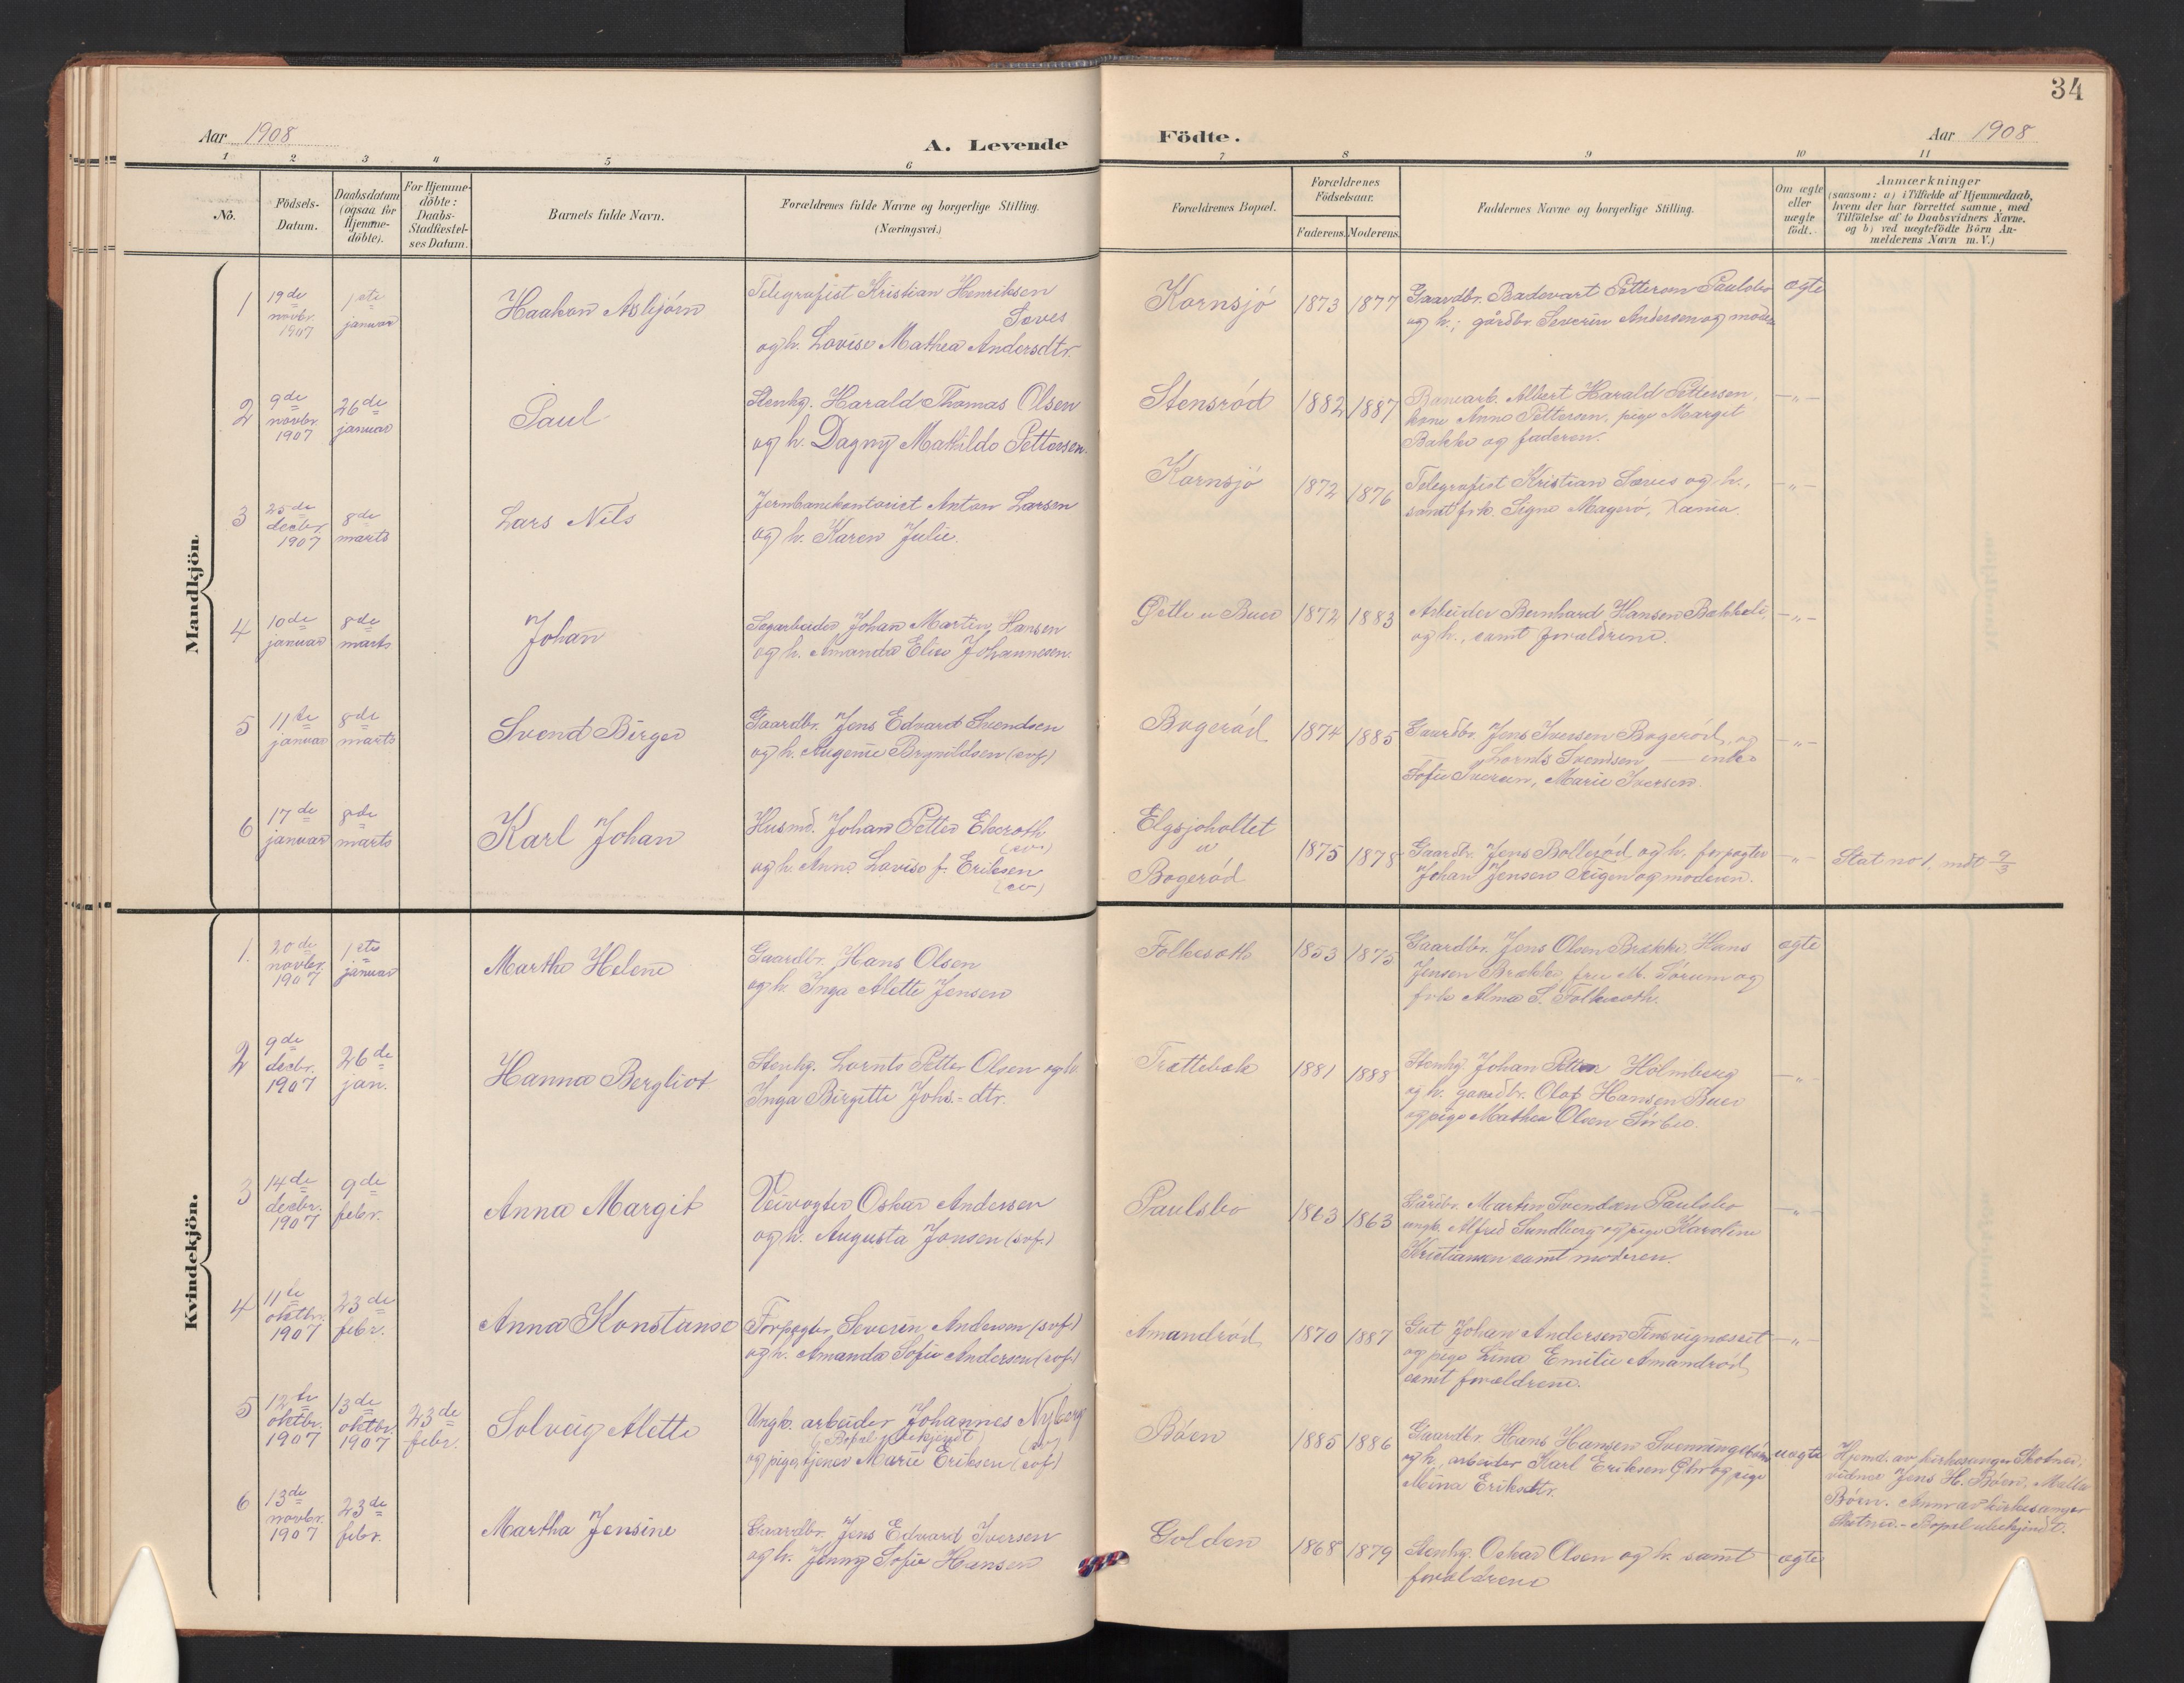 34
Aar 1908
A. Levende
Födte.
Aar 1908
1 2 3 4 5 6 7 8 9 10 11
No.
Födsels-Datum.
Daabsdatum (ogsaa for Hjemme-döbte).
For Hjemme-döbte: Daabs-Stadfæstel-ses Datum.
Barnets fulde Navn.
Forældrenes fulde Navne og borgerlige Stilling.
(Næringsvei.)
Forældrenes Bopæl.
Forældrenes Födselsaar.
Faderens. Moderens.
Faddernes Navne og borgerlige Stilling.
Om ægte eller uægte födt.
Anmærkninger
(saasom: a) i Tilfælde af Hjemmedaab,
hvem der har forrettet samme, med
Tilföielse af to Daabsvidners Navne.
og b) ved uægtefödte Börn An-
melderens Navn m. V.)
Mandkjön.
1 19de novbr. 1907 1ste januar Haakon Asbjörn
Telegrafist Kristian Henriksen
Sæves
og h. Lovise Mathea Andersdtr.
Kornsjö 1873 1877
Gaardbr. Pettersen Paulsbo
og h.; gårdbr. Severin Andersen og moder
ægte
2 9de novbr. 1907 26de januar Paul
Stenhg. Harald Thomas Olsen
og h. Dagny Mathilde Pettersen.
Stensröd 1882 1887
Banearb. Albert Harald Pettersen,
kone Anna Pettersen, pige Margit
Bakke og faderen.
-"-
3 25de decbr. 1907 8de marts Lars Nils
Jernbanekontorist Anton Larsen
og h. Karen Julie.
Kornsjö 1872 1876
Telegrafist Kristian Sæves og h.,
samt frk. Signe Magerö, Xania.
-"-
4 10de januar 8de marts Johan
Sagarbeider Johan Martin Hansen
og h. Amanda Elise Johannesen.
u Buer 1872 1883
Arbeider Bernhard Hansen Bakkeli,
og h., samt forældrene.
-"-
5 11te januar 8de marts Svend Birger
Gaardbr. Jens Edvard Svendsen
og h. Augenie Brynildsen (svf)
Bogeröd 1874 1885
Gaardbr. Jens Iversen Bogeröd, og
Lornts Svendsen — enke
Sofie Iversen, Marie Iversen.
-"-
6 17de januar 8de marts Karl Johan
Husmd. Johan Petter Ekeroth
(sv)
og h. Anna Lovise f. Eriksen
(sv)
Elgsjøholtet
u
Bogeröd
1875 1878
Gaardbr. Jens Bolleröd og h. forpagter
Johan Jensen Teigen og moderen.
-"-
Stat no 1, mdt 9/3
Kvindekjön.
1. 20de novbr. 1907 1ste januar Marthe Helene
Gaardbr. Hans Olsen
og h. Inga Alette Jensen
Folkesoth 1853 1875
Gaardbr. Jens Olsen Brække, Hans
Jensen Brække, fru M. Sörum og
frk Alma S. Folkesoth.
ægte
2 9de decbr. 1907 26de jan. Hanna Bergliot
Stenhg. Lornts Petter Olsen og h.
Inga Birgitte Johs-dtr.
Trættebak 1881 1888
Stenhg. Johan Petter Holmberg
og h. gaardbr. Olaf Hansen Buer
og pige Mathea Olsen Sörbö.
-"-
3 14de decbr. 1907 9de febr. Anna Margit
Veivogter Oskar Andersen
og h. Augusta Jonsen (svf.)
Paulsbo 1863 1863
Gårdbr. Martin Svendsen Paulsbo
ungk. Alfred Sundberg og pige Karoline
Kristiansen samt moderen.
-"-
4 11te oktbr. 1907 23de febr. Anna Konstanse
Forpagter Severin Andersen (svf)
og h. Amanda Sofie Andersen (svf.)
Amandröd 1870 1887
Gut Johan Andersen
og pige Lina Emilie Amandröd,
samt forældrene.
-"-
5 12te oktbr. 1907 13de oktbr. 1907 23de febr. Solveig Alette
Ungk. arbeider Johannes Nyberg
(Bopæl ubekjendt) (sv)
og pige, tjener Marie Eriksen (svf)
Böen 1885 1886
Gaardbr. Hans Hansen
og h. arbeider Karl Eriksen og pige
Mina Eriksdtr.
uægte
Hjemd. av kirkesanger Skotner,
vidner Jens H. Böen, Malla
Böen. Anm av kirkesanger
Skotner. - Bopæl ubekjendt.
6 13de novbr. 1907 23de febr. Martha Jensine
Gaardbr. Jens Edvard Iversen
og h. Jenny Sofie Hansen
Golden 1868 1879
Stenhg. Oskar Olsen og h. samt
forældrene
ægte